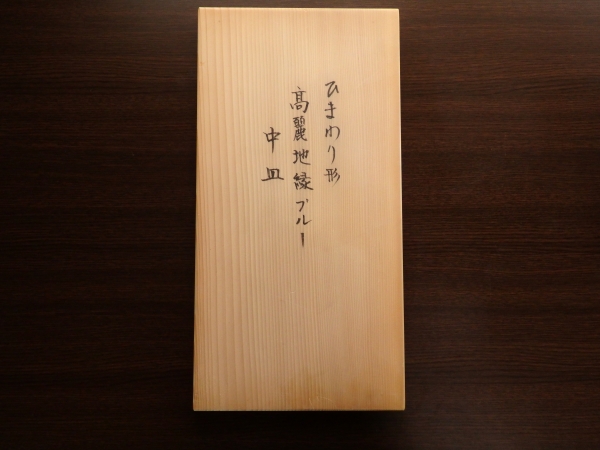 ひまわり形
高麗地縁ブルー
中皿